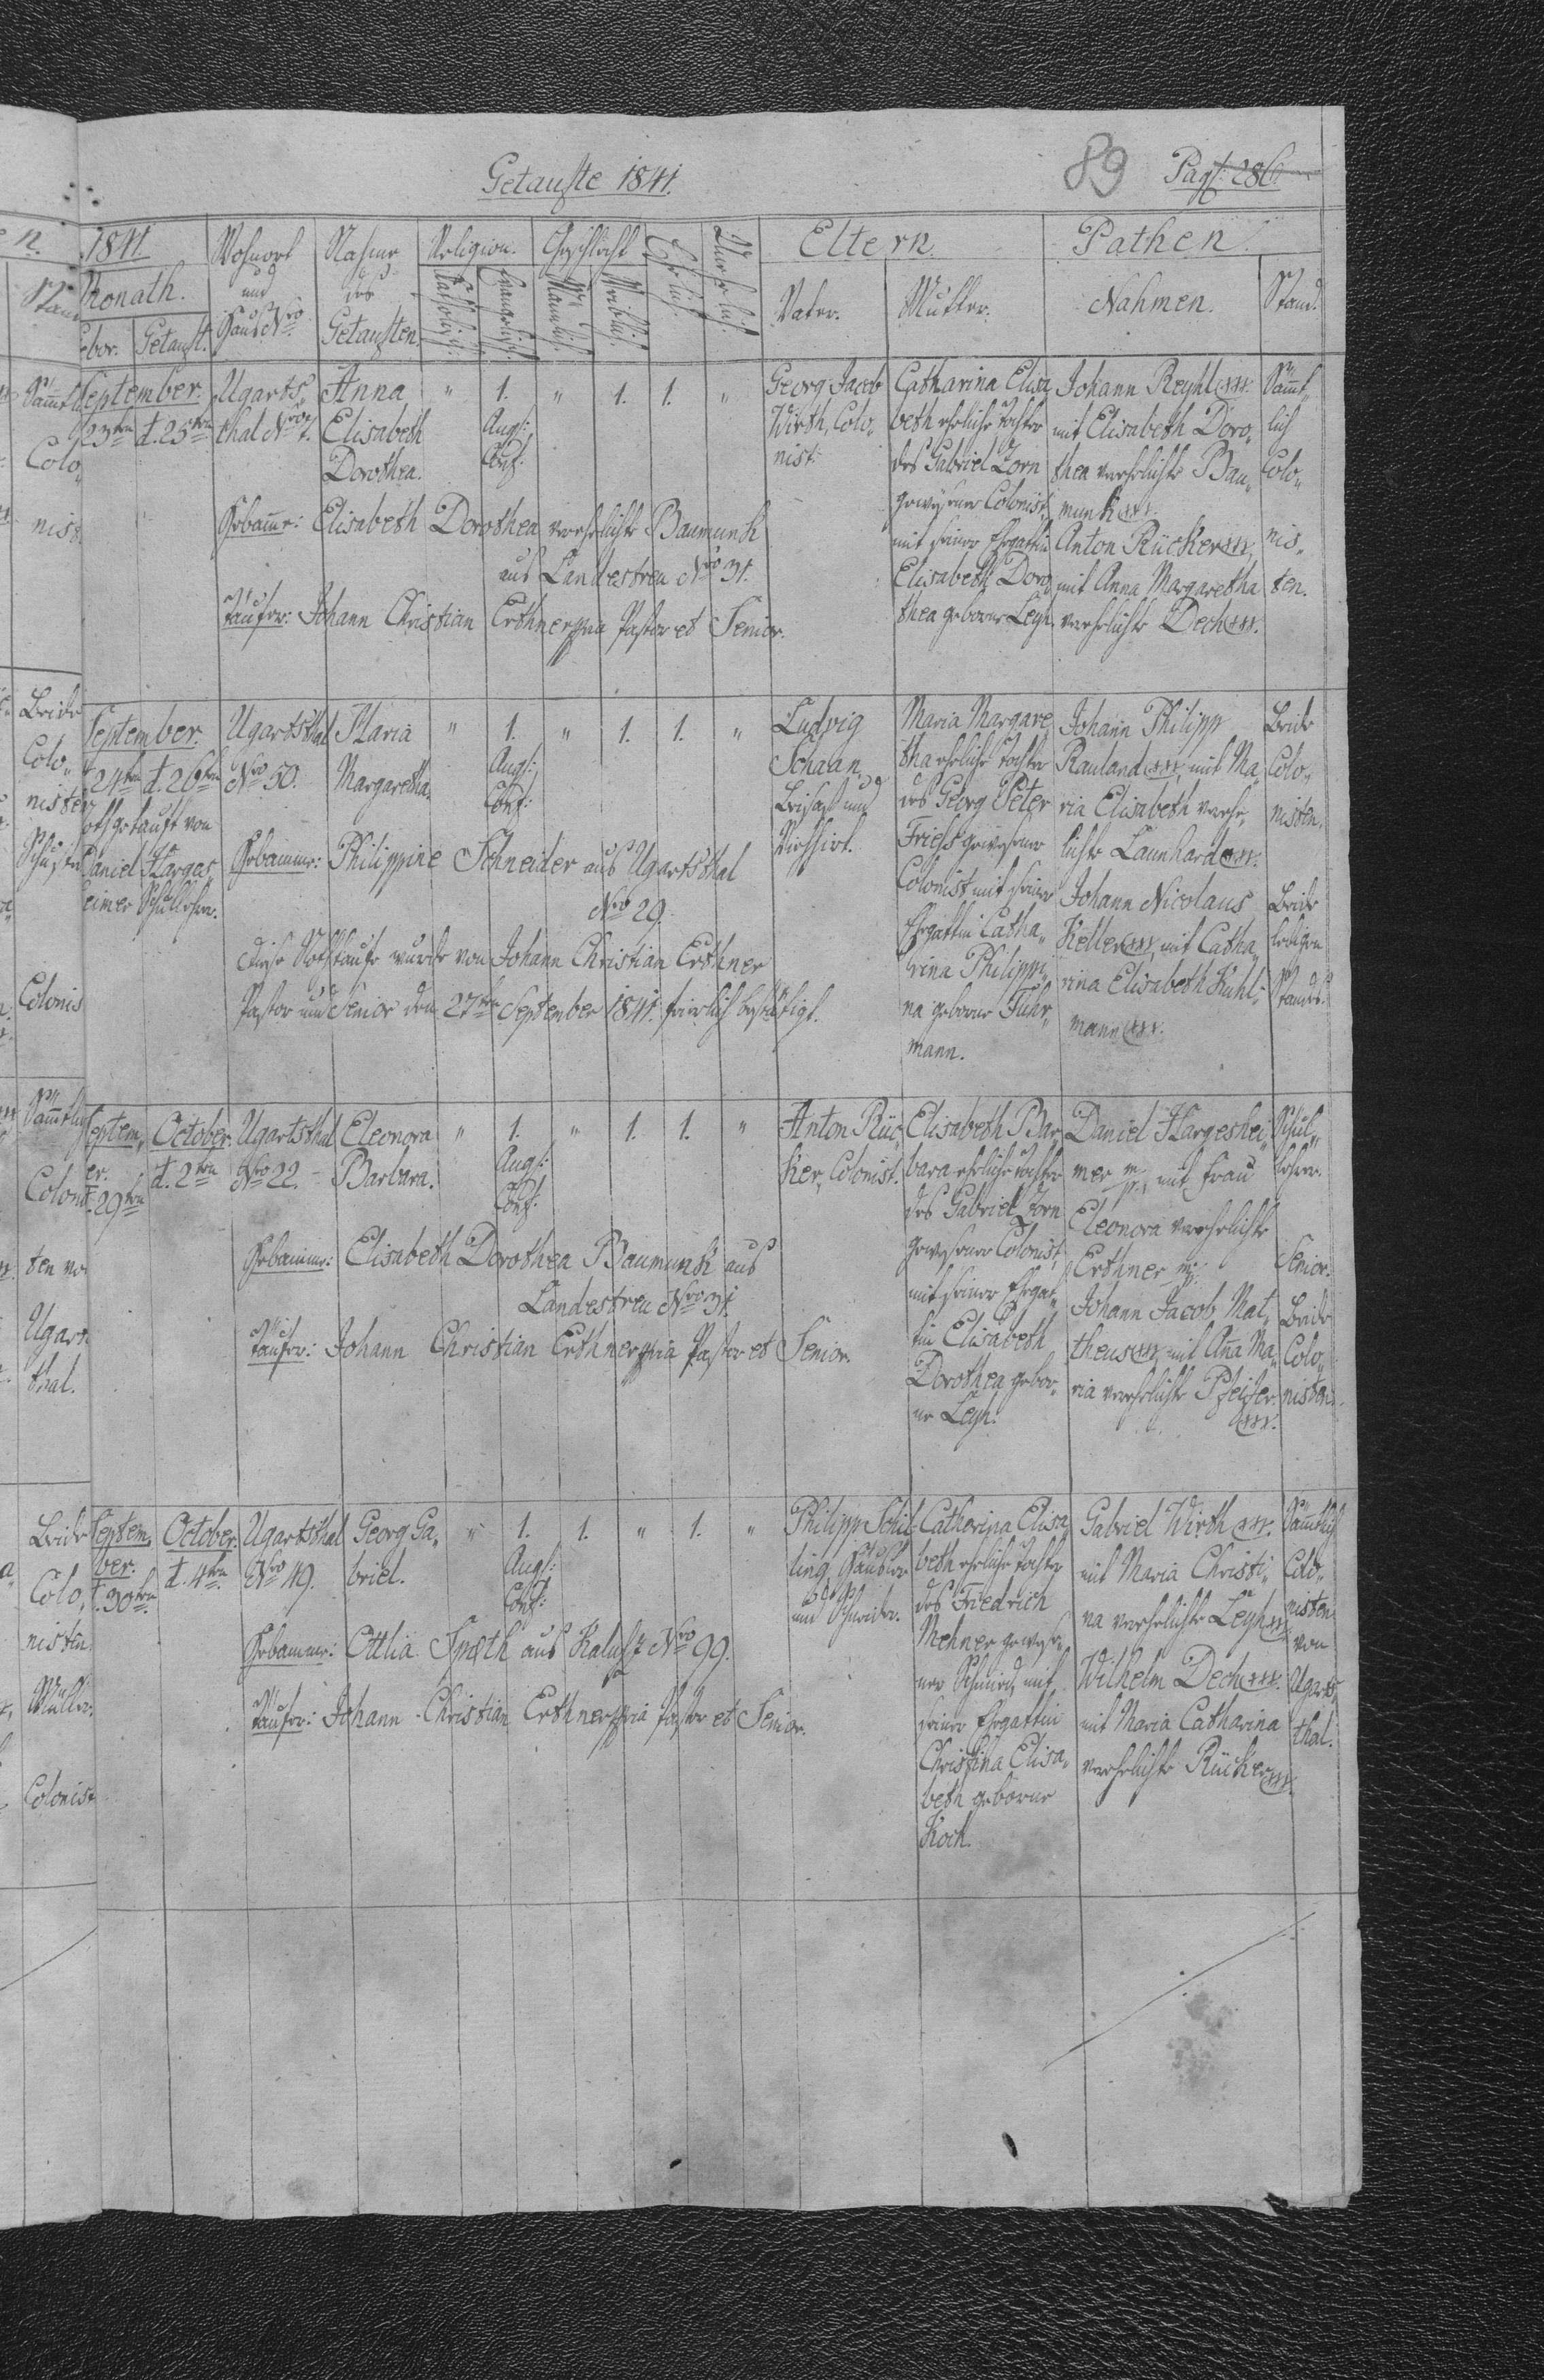 Getaufte 1841.
89 Pag: 286.
1841.
Wohnort und Haus Nro
Nahme des Getauften
Religion.
Geschlecht
Ehelich.
Unehelich.
Eltern.
Pathen.
Monath.
Gebor. Getauft.
Katholisch.
Evangelisch.
Männlich.
Weiblich.
Vater.
Mutter.
Nahmen.
Stand.
September.
23ten d. 25ten
Ugarts„
thal Nro 7.
Anna
Elisabeth
Dorothea.
" 1. " 1. 1. "
Augs:
Conf:
Georg Jacob
Wirth, Colo„
nist.
Catharina Elisa„
beth eheliche Tochter
des Gabriel Zorn
gewesener Colonist,
mit seiner Ehegattin
Elisabeth Doro„
thea geborne Leyh.
Johann Reyhl xxx.
mit Elisabeth Doro„
thea verehelichte Bau„
munk xxx.
Anton Rücker xxx,
mit Anna Margaretha
verehelichte Dech xxx.
Sämt„
lich
Colo„
nis„
ten.
Hebamme: Elisabeth Dorothea verehelichte Baumunk
aus Landestreu Nro 31.
Taufer: Johann Christian Erthner mpria Pastor et Senior.
September.
24ten d. 26ten
Nothgetauft von
Daniel Harges„
heimer Schullehrer.
Ugartsthal
Nro 50.
Maria
Margaretha.
" 1. " 1. 1. "
Augs:
Conf:
Ludvig
Schaan,
Beisaß und
Viehhirt.
Maria Margare„
tha eheliche Tochter
des Georg Peter
Friess gewesener
Colonist mit seiner
Ehegattin Catha„
rina Philippi„
na geborne Fuhr„
mann.
Johann Philipp
Rauland xxx, mit Ma„
ria Elisabeth verehe„
lichte Launhard xxx.
Johann Nicolaus
Keller xxx, mit Catha„
rina Elisabeth Kuhl„
mann xxx.
Beide
Colo„
nisten.
Beide
ledigen
Standes.
Hebamme: Philippine Schneider aus Ugartsthal
Nro 29.
Diese Nothtaufe wurde von Johann Christian Erthner
Pastor und Senior den 27ten September 1841. feierlich bestätigt.
Septem„
ber.
d. 29ten
October.
d. 2ten
Ugartsthal
Nro 22.
Eleonora
Barbara.
" 1. " 1. 1. "
Augs:
Conf:
Anton Rüc„
ker, Colonist.
Elisabeth Bar„
bara eheliche Tochter
des Gabriel Zorn
gewesener Colonist,
mit seiner Ehegat„
tin Elisabeth
Dorothea gebor„
ne Leyh.
Daniel Hargeshei„
mer mp., mit Frau
Eleonora verehelichte
Erthner mp.
Johann Jacob Mat„
theus xxx, mit Ana Ma„
ria verehelichte Pfeifer
xxx.
Schul„
lehrer.
Senior.
Beide
Colo„
nisten.
Hebamme: Elisabeth Dorothea Baumunk aus
Landestreu Nro 31.
Taufer: Johann Christian Erthner mpria Pastor et Senior.
Septem„
ber.
d. 30ten
October.
d. 4ten
Ugartsthal
Nro 49.
Georg Ga„
briel.
" 1. 1. " 1. "
Augs:
Conf:
Philipp Schil„
ling, Häusler
und Schneider.
Catharina Elisa„
beth eheliche Tochter
des Friedrich
Mehner gewese„
ner Schmied, mit
seiner Ehegattin
Christina Elisa„
beth geborne
Koch.
Gabriel Wirth xxx.
mit Maria Christi„
na verehelichte Leyh xxx.
Wilhelm Dech xxx.
mit Maria Catharina
verehelichte Rücker xxx.
Sämtlich
Colo„
nisten
von
Ugarts„
thal.
Hebamme: Ottlia Speth aus Kalusz Nro 99.
Taufer: Johann Christian Erthner mpria Pastor et Senior.